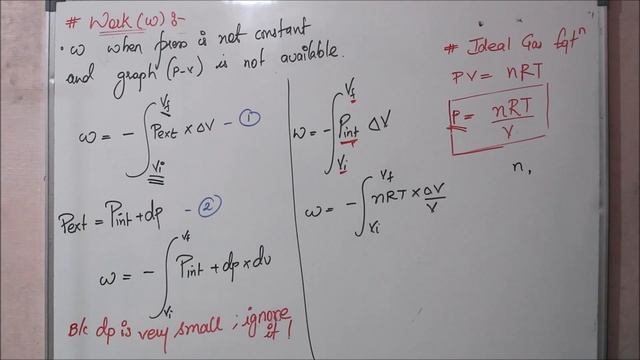 # Work (w) :-
· w when press is not constant
and graph (P-V) is not available.
w = - ∫ Vi Vf Pext × ΔV - ①
Pext = Pint + dp - ②
w = - ∫ Vi Vf Pint + dp × dv
B/c dp is very small ; ignore
it !
W = - ∫ Vi Vf Pint ΔV
w = - ∫ Vi Vf nRT × ΔV/V
# Ideal Gas Eqtⁿ
PV = nRT
P = nRT/V
n,